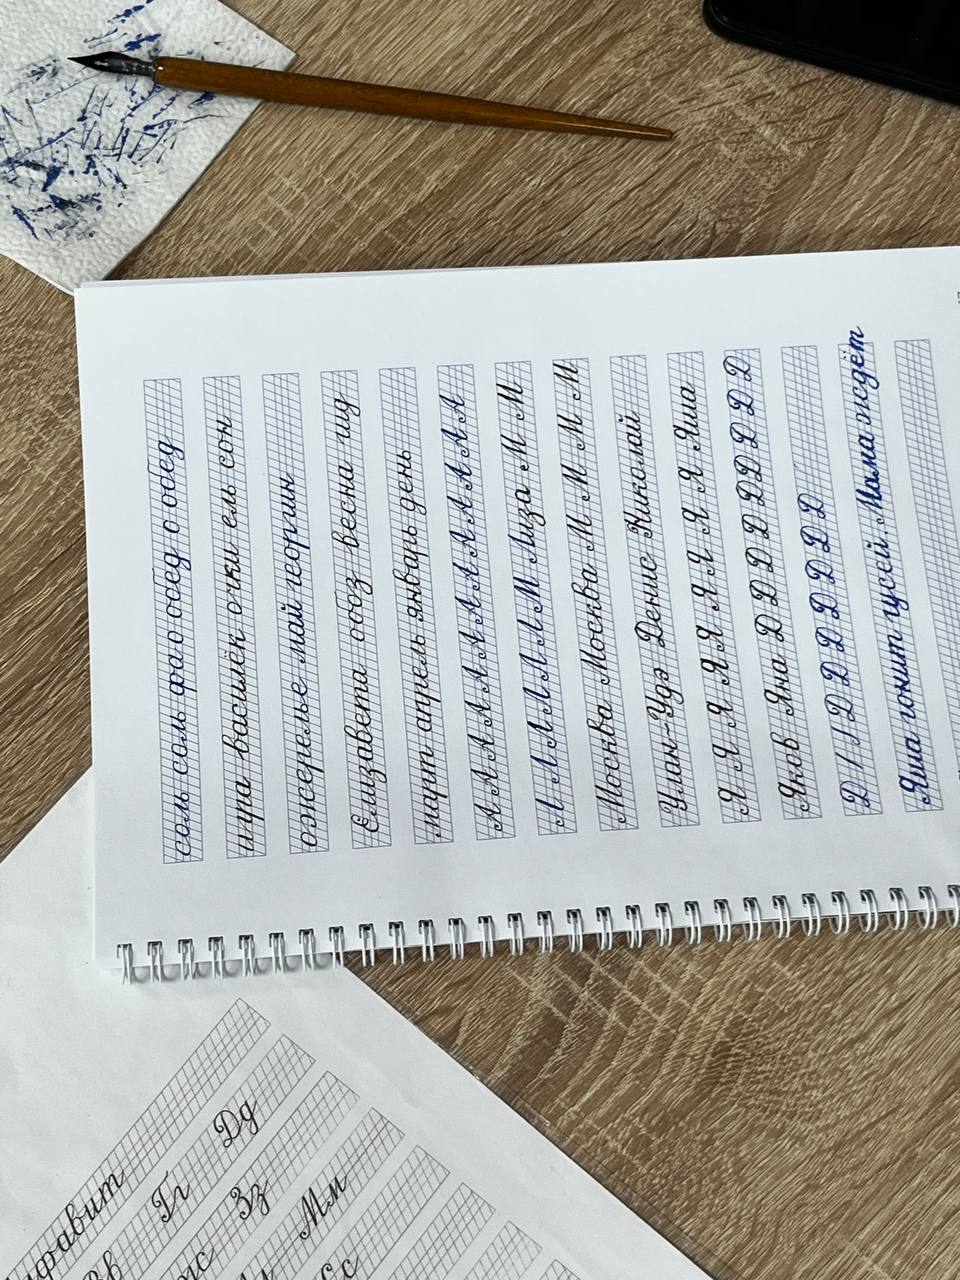 соль соль фа о обед о обед
игра василёк очки ель сон
ожерелье май георгин
Елизавета обоз весна щу
март апрель январь день
А А А А А А А А А А А А
Л Л Л Л Л М Лиза М М М
Москва Москва М М М М М
Улан-Удэ Денис Николай
Я Я Я Я Я Я Я Я Яша
Яков Яна Д Д Д Д Д Д Д Д Д
Д Д Д Д Д Д Д
Яша гонит гусей. Мама ждёт
Гг Дд
Зз
Мм
Сс